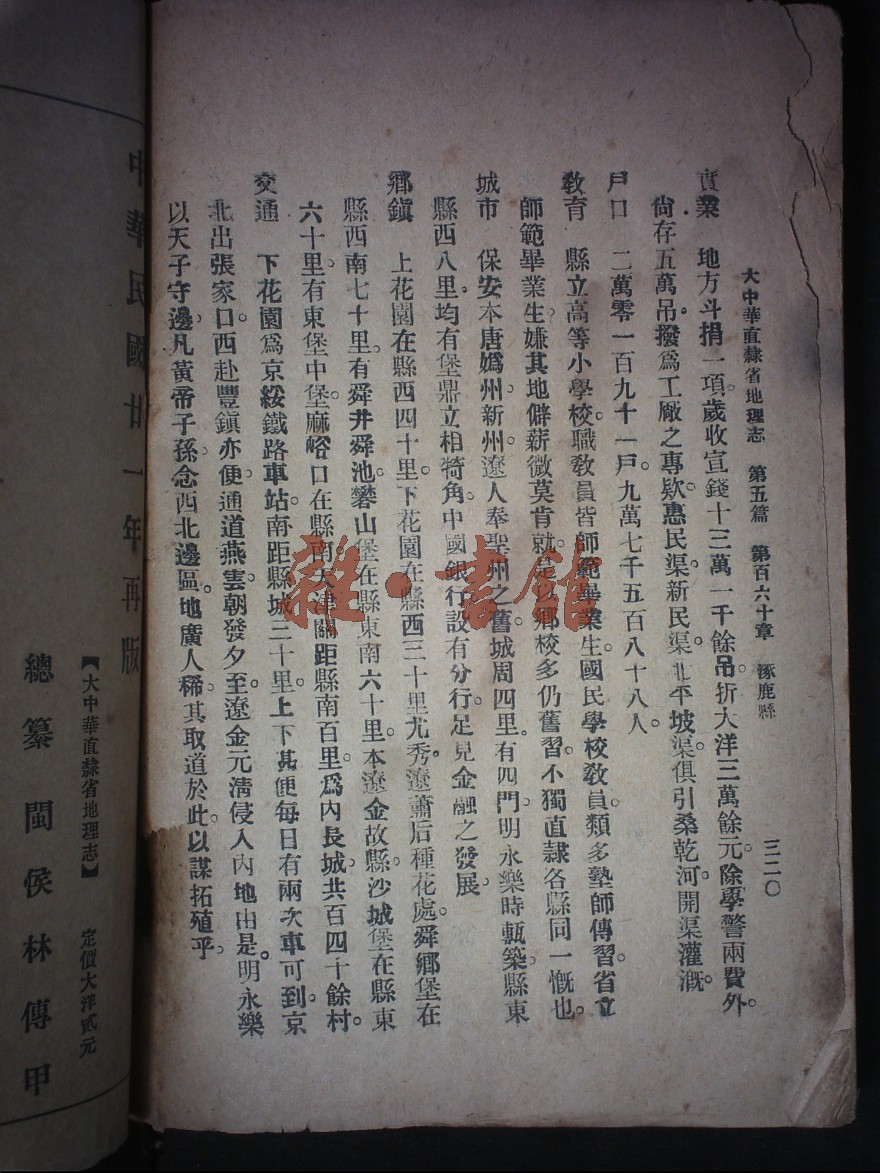 大中華直隸省地理志　第五篇　第百六十章　涿鹿縣　三二〇
實業　地方斗捐一項。歲收宣錢十三萬一千餘吊。折大洋三萬餘元。除學警兩費外。
尙存五萬吊。撥爲工廠之專欵。惠民渠。新民渠。北平坡渠。俱引桑乾河。開渠灌漑。
戶口　二萬零一百九十一戶。九萬七千五百八十八人。
敎育　縣立高等小學校。職敎員皆師範畢業生。國民學校敎員。類多塾師傳習。省立
師範畢業生。嫌其地僻薪微。莫肯就。是鄉校多仍舊習。不獨直隸各縣同一慨也。
城市　保安本唐嬀州。新州。遼人奉聖州之舊城。周四里。有四門。明永樂時甎築。縣東
縣西八里。均有堡鼎立相犄角。中國銀行設有分行。足見金融之發展。
鄉鎭　上花園在縣西四十里。下花園在縣西三十里。尤秀。遼蕭后種花處。舜鄉堡在
縣西南七十里。有舜井舜池。礬山堡在縣東南六十里。本遼金故縣。沙城堡在縣東
六十里。有東堡中堡。麻峪口在縣南。天津關距縣南百里。爲內長城。共百四十餘村。
交通　下花園爲京綏鐵路車站。南距縣城三十里。上下甚便。每日有兩次車可到京。
北出張家口。西赴豐鎭亦便。通道燕雲。朝發夕至。遼金元淸侵入內地由是。明永樂
以天子守邊。凡黃帝子孫。念西北邊區。地廣人稀。其取道於此。以謀拓殖乎。
中華民國廿一年再版
【大中華直隸省地理志】　定價大洋貳元
總纂　閩侯林傳甲
雜·書館